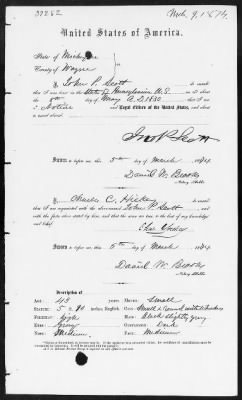 37252
Mch. 9, 1874
United States of America.
State of Michigan
County of Wayne
I, John P. Scott do swear
that I was born in the State of Pennsylvania U.S. on or about
the 8th day of May A.D. 1830
that I am a Native and Loyal Citizen of the United States, and about
to travel abroad.
Jno P. Scott
Sworn to before me this 5th day of March 1874
Daniel W. Brooks
Notary Public.
I, Charles C. Hickey do swear
that I am acquainted with the above-named John P. Scott and
with the facts above stated by him, and that the same are true to the best of my knowledge
and belief.
Sworn to before me this 5th day of March 1874
Daniel W. Brooks
Notary Public.
Description of
Age: 43 years. Mouth: Small
Stature: 5 ft inches, English. Chin: Small & round
Forehead: high Hair: Black slightly gray
Eyes: Gray Complexion: Dark
Nose: Medium Face: Medium